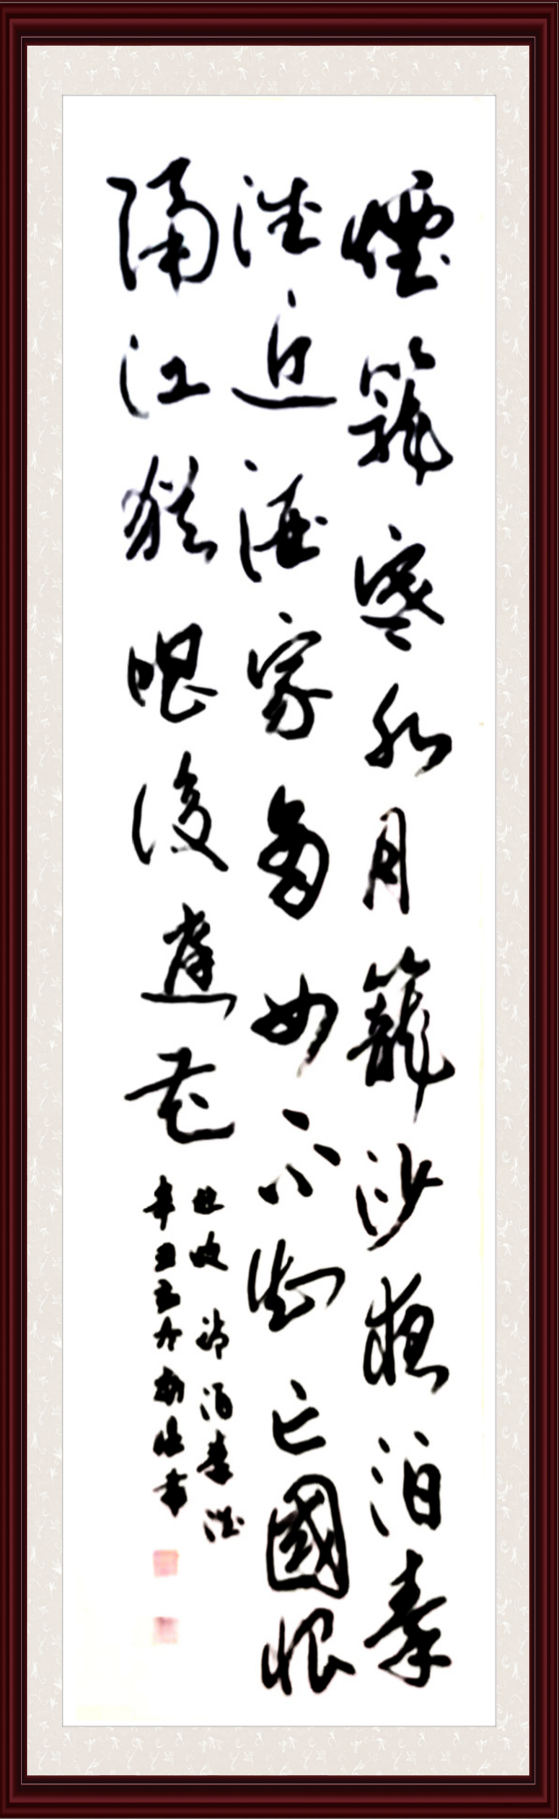 煙籠寒水月籠沙夜泊秦
淮近酒家商女不知亡國恨
隔江猶唱後庭花
杜牧詩泊秦淮
辛丑